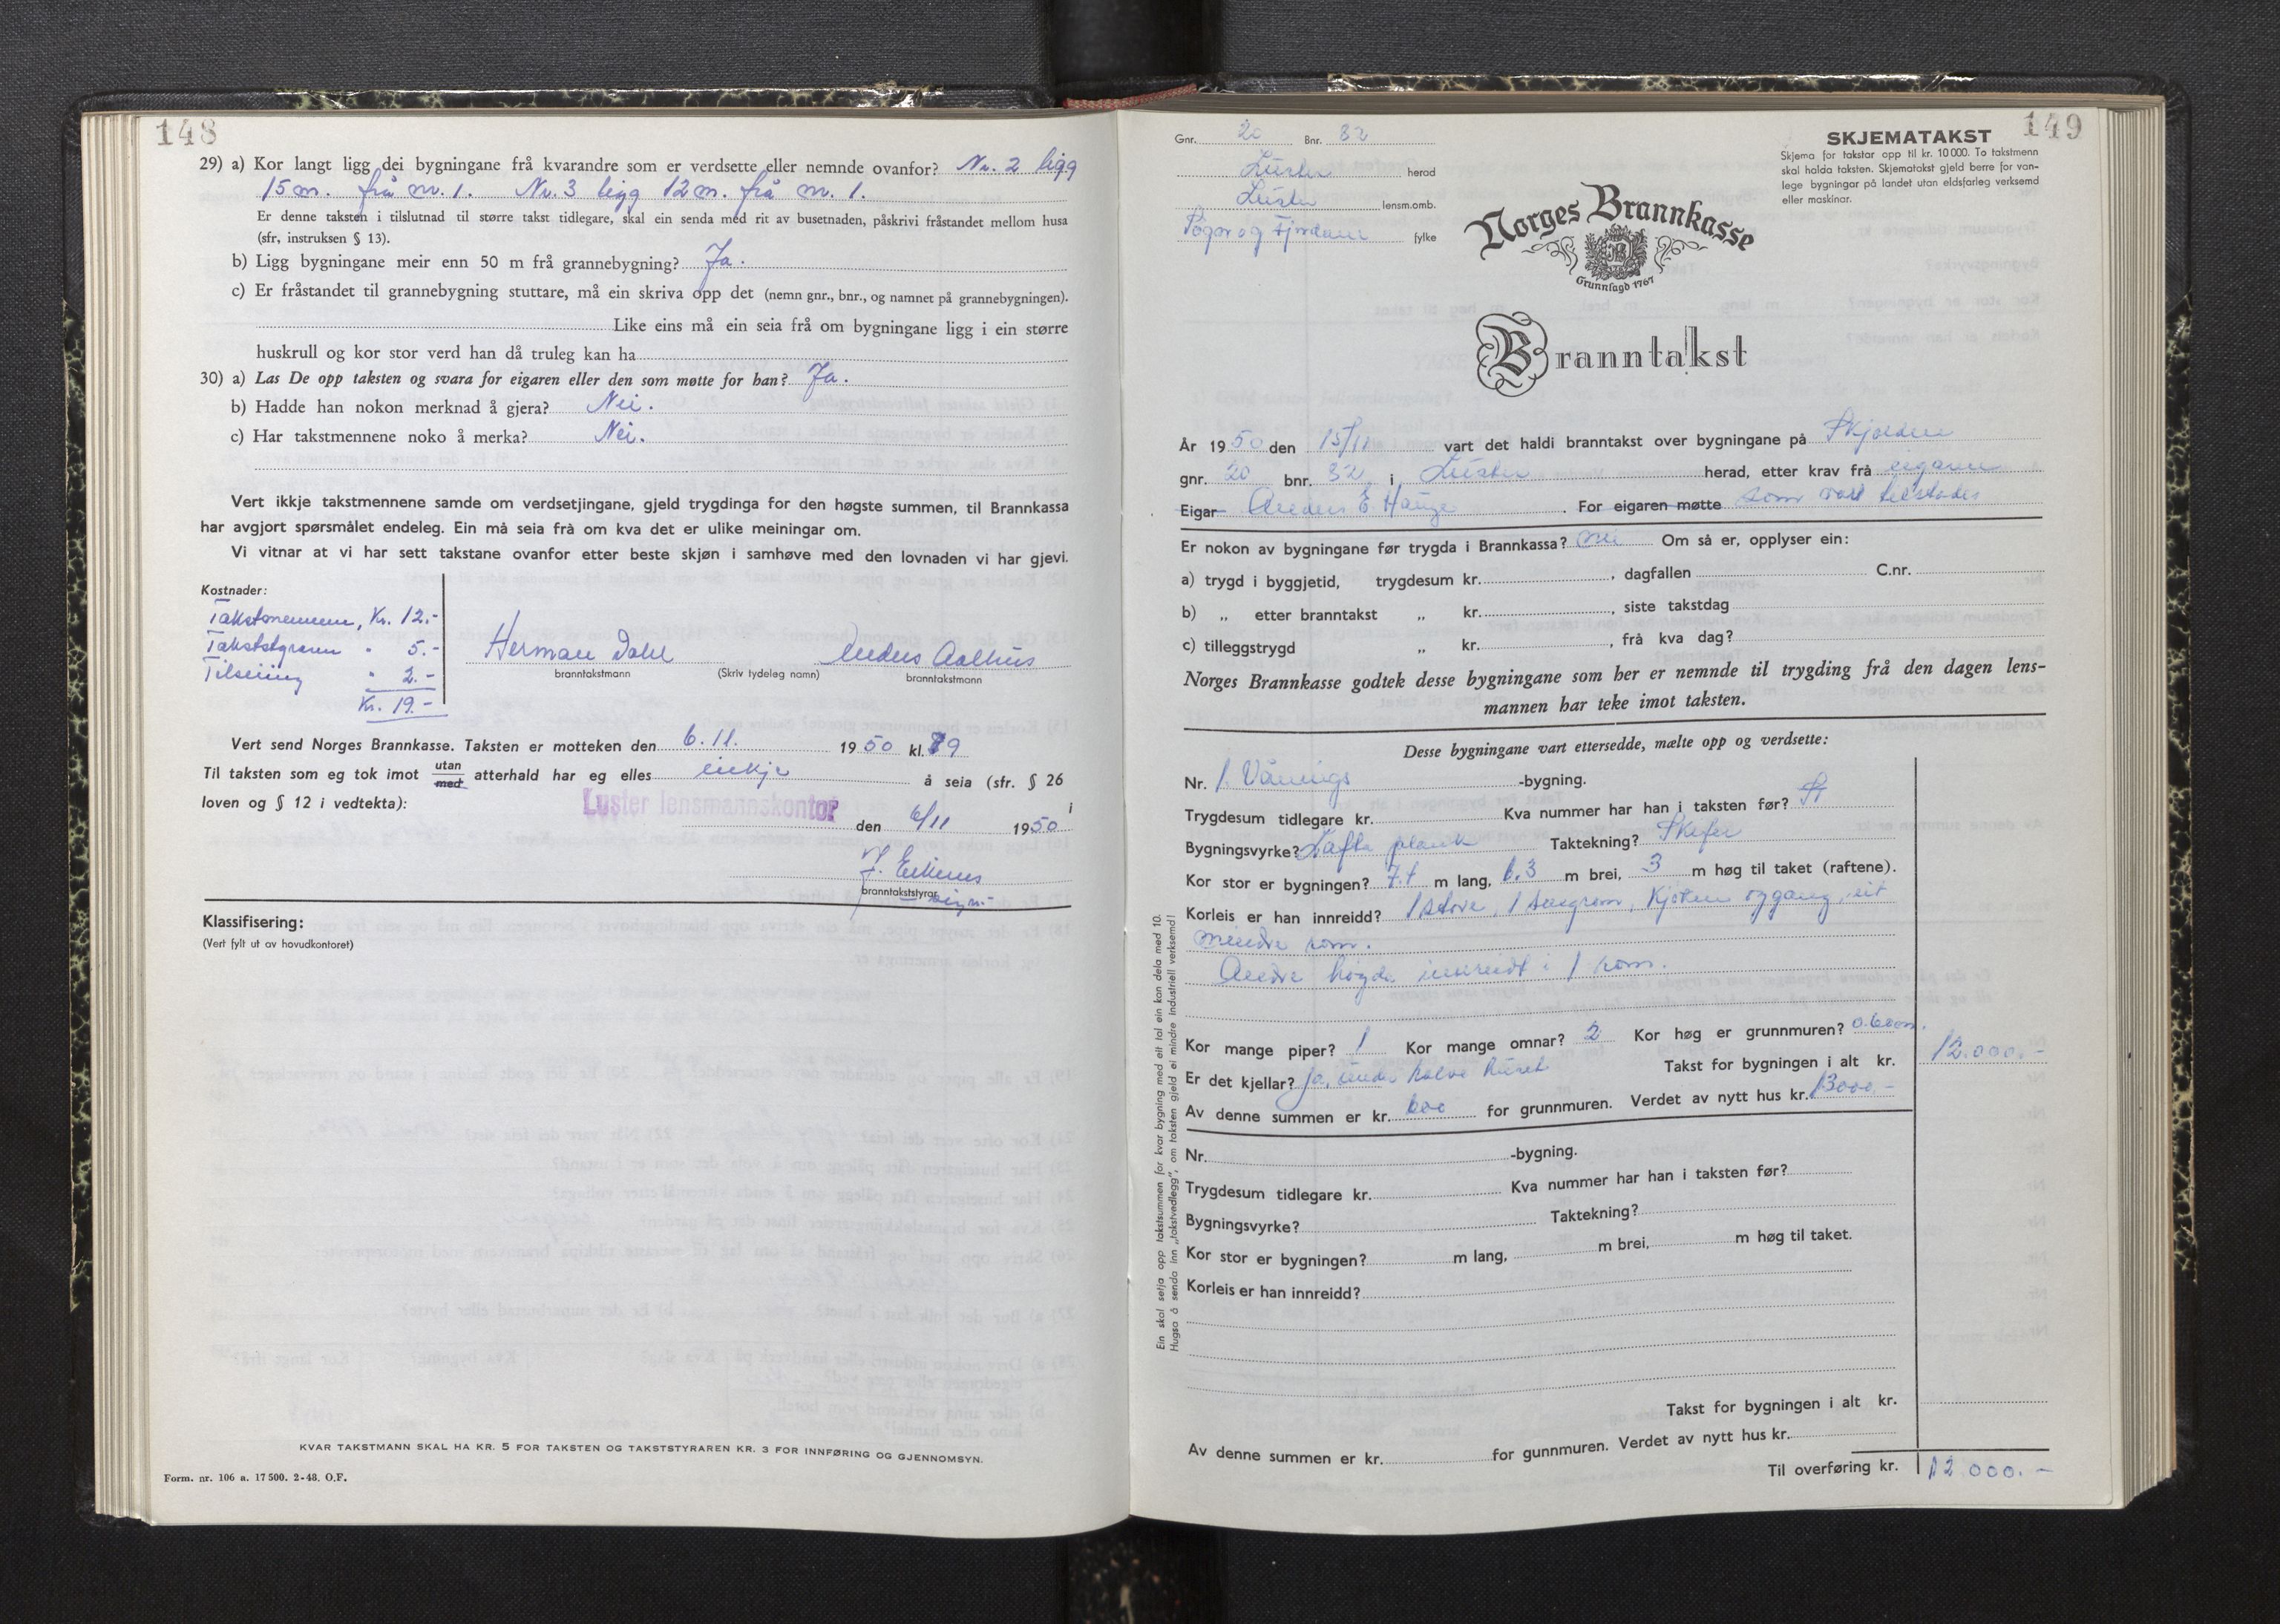 148
29) a) Kor langt ligg dei bygningane frå kvarandre som er verdsette eller nemnde ovanfor? Nr. 2 ligg
15 m. frå nr. 1. Nr. 3 ligg 12 m. frå nr. 1.
Er denne taksten i tilslutnad til større takst tidlegare, skal ein senda med rit av busetnaden, påskrivi fråstandet mellom husa
(sfr, instruksen § 13).
b) Ligg bygningane meir enn 50 m frå grannebygning? Ja.
c) Er fråstandet til grannebygning stuttare, må ein skriva opp det (nemn gnr., bnr., og namnet på grannebygningen).
Like eins må ein seia frå om bygningane ligg i ein større
huskrull og kor stor verd han då truleg kan ha
30) a) Las De opp taksten og svara for eigaren eller den som møtte for han? Ja.
b) Hadde han nokon merknad å gjera? Nei.
c) Har takstmennene noko å merka? Nei.
Vert ikkje takstmennene samde om verdsetjingane, gjeld trygdinga for den høgste summen, til Brannkassa
har avgjort spørsmålet endeleg. Ein må seia frå om kva det er ulike meiningar om.
Vi vitnar at vi har sett takstane ovanfor etter beste skjøn i samhøve med den lovnaden vi har gjevi.
Kostnader:
Takstmennene, Kr. 12.-
Takststyraren " 5.-
Tilseiing " 2.-
Kr. 19.-
Herman Dahl Anders Aalhus
branntakstmann (Skriv tydeleg namn) branntakstmann
Vert send Norges Brannkasse. Taksten er motteken den 6.11. 1950 kl. 19
Til taksten som eg tok imot utan/med atterhald har eg elles ikkje å seia (sfr. § 26 i
loven og § 12 i vedtekta):
Luster lensmannskontor
den 6/11 1950
branntakststyrar
Klassifisering:
(Vert fylt ut av hovudkontoret)
KVAR TAKSTMANN SKAL HA KR. 5 FOR TAKSTEN OG TAKSTSTYRAREN KR. 3 FOR INNFØRING OG GJENNOMSYN.
Form. nr. 106 a. 17 500. 2-48. O.F.
149
Gnr. 20 Bnr. 32
Luster herad
Luster lensm.omb.
Sogn og Fjordane fylke
SKJEMATAKST
Skjema for takstar opp til kr. 10 000. To takstmenn
skal halda taksten. Skjematakst gjeld berre for van-
lege bygningar på landet utan eldsfarleg verksemd
eller maskinar.
Norges Brannkasse
Grunnlagd 1767
Branntakst
År 1950 den 15/11 vart det haldi branntakst over bygningane på Skjolden
gnr. 20 bnr. 32 i Luster herad, etter krav frå eigaren
Eigar Anders E. Hauge. For eigaren møtte som var tilstades
Er nokon av bygningane før trygda i Brannkassa? nei Om så er, opplyser ein:
a) trygd i byggjetid, trygdesum kr. , dagfallen C.nr.
b) „ etter branntakst „ kr. , siste takstdag
c) tilleggstrygd „ kr. , frå kva dag?
Norges Brannkasse godtek desse bygningane som her er nemnde til trygding frå den dagen lens-
mannen har teke imot taksten.
Desse bygningane vart ettersedde, mælte opp og verdsette:
Nr. 1. Vånings -bygning.
Trygdesum tidlegare kr. Kva nummer har han i taksten før?
Bygningsvyrke? Lafta plank Taktekning? Skifer
Kor stor er bygningen? 7.7 m lang, 6.3 m brei, 3 m høg til taket (raftene).
Korleis er han innreidd? 1 stove, 1 soverom, kjøken og gang, eit
mindre rom.
Andre høgda innreidt i 1 rom.
Kor mange piper? 1 Kor mange omnar? 2 Kor høg er grunnmuren? 0.60 m.
Er det kjellar? ja, under halve huset Takst for bygningen i alt kr. 12.000.-
Av denne summen er kr. 600 for grunnmuren. Verdet av nytt hus kr. 13000.-
Nr. -bygning.
Trygdesum tidlegare kr. Kva nummer har han i taksten før?
Bygningsvyrke? Taktekning?
Kor stor er bygningen? m lang, m brei, m høg til taket.
Korleis er han innreidd?
Takst for bygningen i alt kr.
Av denne summen er kr. for gunnmuren. Verdet av nytt hus kr.
Til overføring kr. 12 000.-
Ein skal setja opp takstsummen for kvar bygning med eit tal ein kan dela med 10.
Hugsa å senda inn „takstvedlegg“, om taksten gjeld ei mindre industriell verksemd!